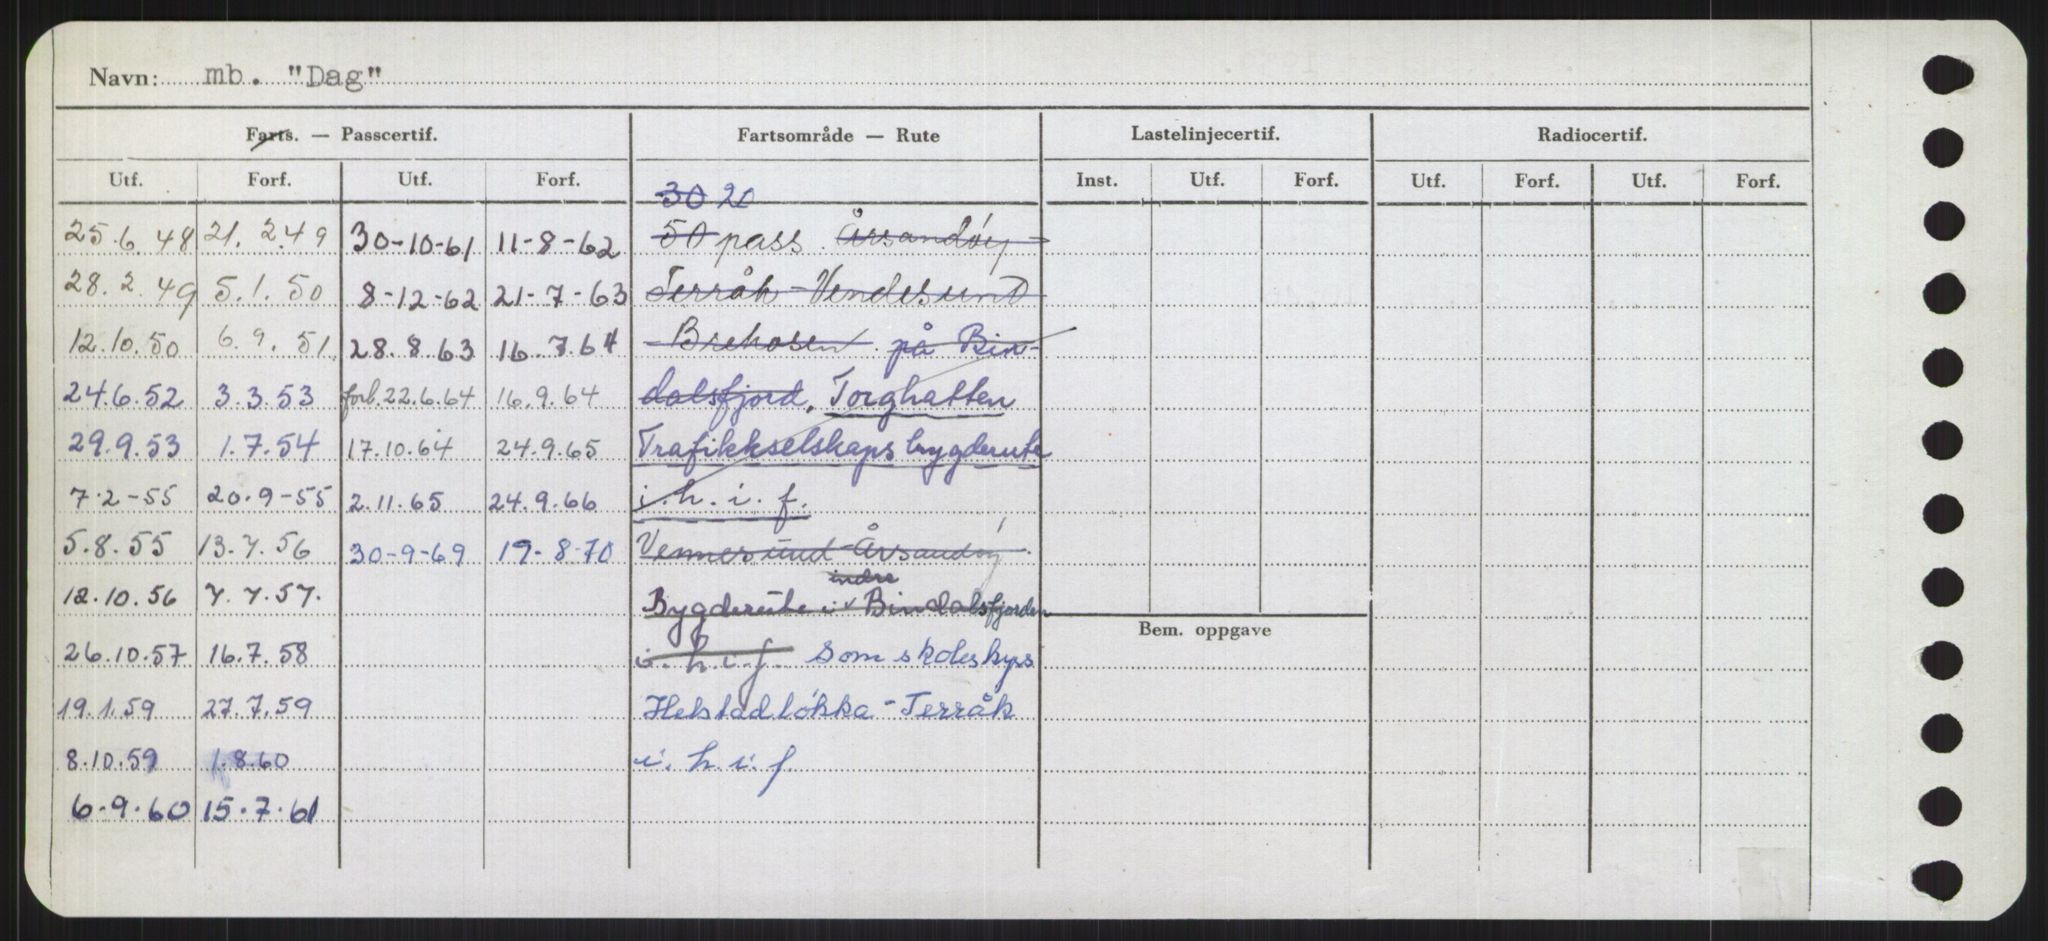 Navn: mb. "Dag"
Farts. — Passcertif. Fartsområde — Rute Lastelinjecertif. Radiocertif.
Utf. Forf. Utf. Forf. Inst. Utf. Forf. Utf. Forf. Utf. Forf.
30 20
25.6.48 21.2.49 30-10-61 11-8-62 50 pass. Årsandøy -
28.2.49 5.1.50 8-12-62 21-7-63 Terråk - Vendesund
12.10.50 6.9.51. 28.8.63 16.7.64 - Brekosen på Bin-
24.6.52 3.3.53 forl. 22.6.64 16.9.64 dalsfjord. Torghatten
29.9.53 1.7.54 17.10.64 24.9.65 Trafikkselskaps bygderute
7-2-55 20.9-55 2.11.65 24.9.66 i.h.i.f.
5.8.55 13.7.56 30-9-69 19-8-70 Vennesund - Årsandøy.
indre
12.10.56 7.7.57. Bygderute i Bindalsfjorden
Bem. oppgave
26.10.57 16.7.58 i.h.i.f. Som skoleskyss
19.1.59 27.7.59 Helstadløkka - Terråk
8.10.59 1.8.60 i.h.i.f
6-9-60 15.7.61